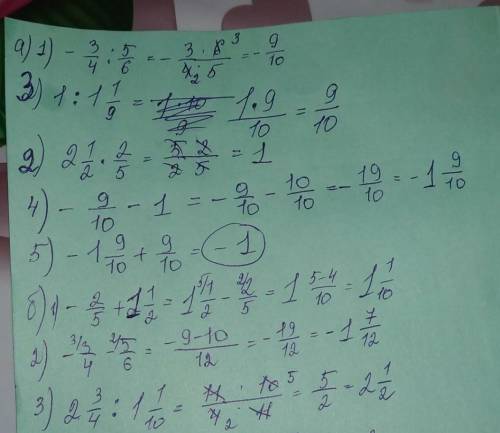 а) 1) - 3/4 : 5/6 = - 3 · 6 3 / 4 2 · 5 = - 9/10
3) 1 : 1 1/9 = 1 · 10 / 9 1 · 9 / 10 = 9/10
2) 2 1/2 · 2/5 = 5 2 / 2 5 = 1
4) - 9/10 - 1 = - 9/10 - 10/10 = - 19/10 = - 1 9/10
5) - 1 9/10 + 9/10 = - 1
б) 1) - 2/5 + 1 1/2 = 1 5/1/2 - 2/2/5 = 1 5-4/10 = 1 1/10
2) - 3/3/4 - 2/5/6 = -9-10/12 = - 19/12 = - 1 7/12
3) 2 3/4 : 1 1/10 = 11 · 10 5 / 4 2 · 11 = 5/2 = 2 1/2